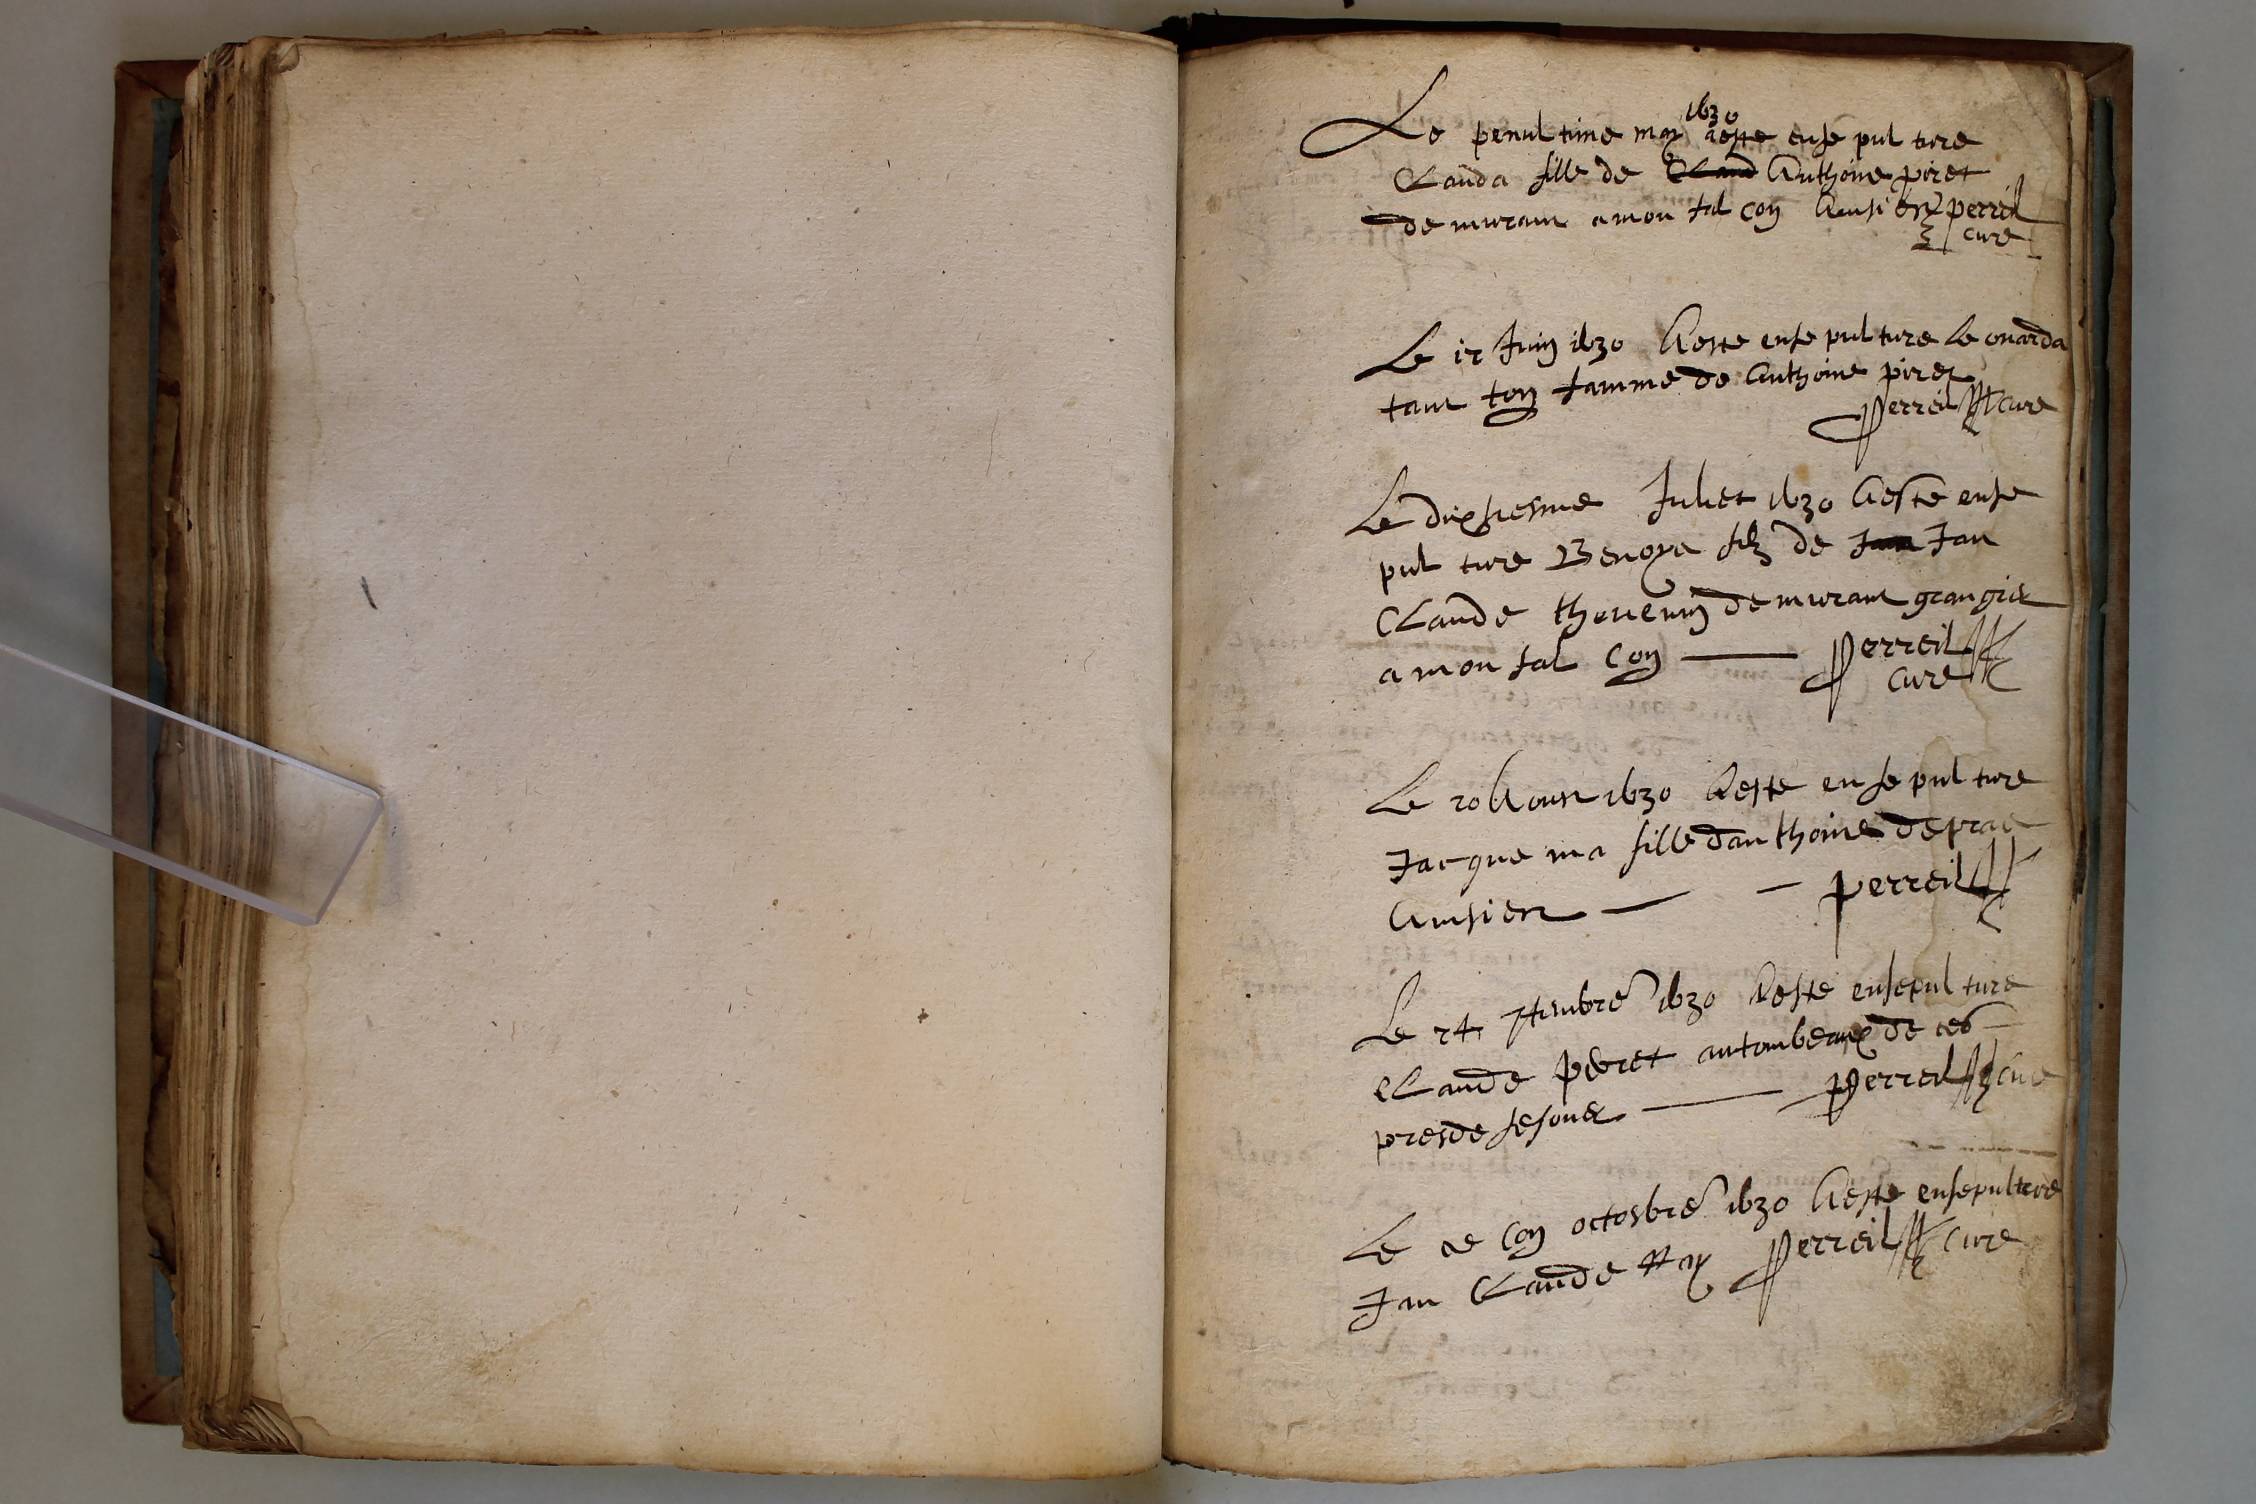 1630
Le penultime may aeste ense pul ture
Clauda fille de Claud Anthoine piret
de murant a mon fal con Ainsi est perreil
cure
Le 12 Juin 1630 A este ense pul ture Le onarda
tant ton famme de Anthoine piret
perreil cure
Le dixhiesme Juliet 1630 A este ense
pul ture Benoya filz de Jan Jan
Claude thevenin de murant grangier
a mon fal con perreil
cure
Le 20 Aoust 1630 A este en se pul ture
Jacque ma fille danthoine de prae
Ainsi est perreil
Le 24 7tembre 1630 A este ensepul ture
Claude perret au tombeaux de ces
predesesoues perreil cure
Le se con octosbre 1630 A este ensepulture
Jan Claude perreil cure